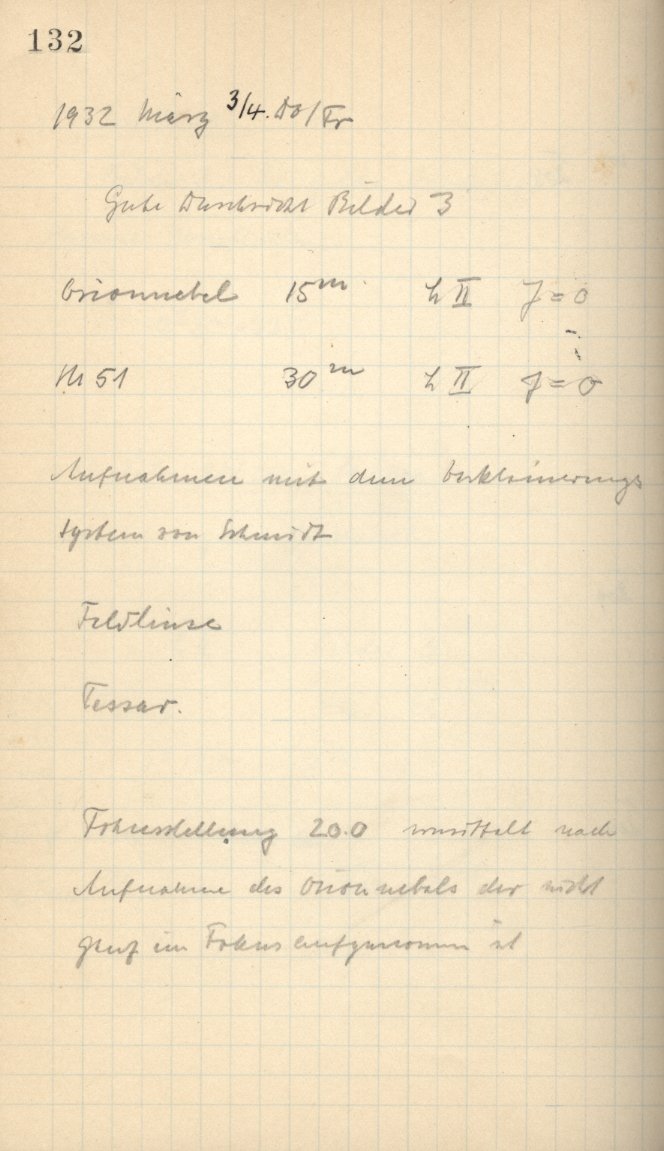 132
1932 März 3/4. Do/Fr
Gute Durchsicht Bilder 3
Orionnebel 15m h II J = 0
M 51 30m h II J = 0
Aufnahmen mit dem Verkleinerungs
system von Schmidt
Feldlinse
Tessar.
Fokusstellung 20.0 ermittelt nach
Aufnahme des Orionnebels der nicht
ganz im Fokus aufgenommen ist